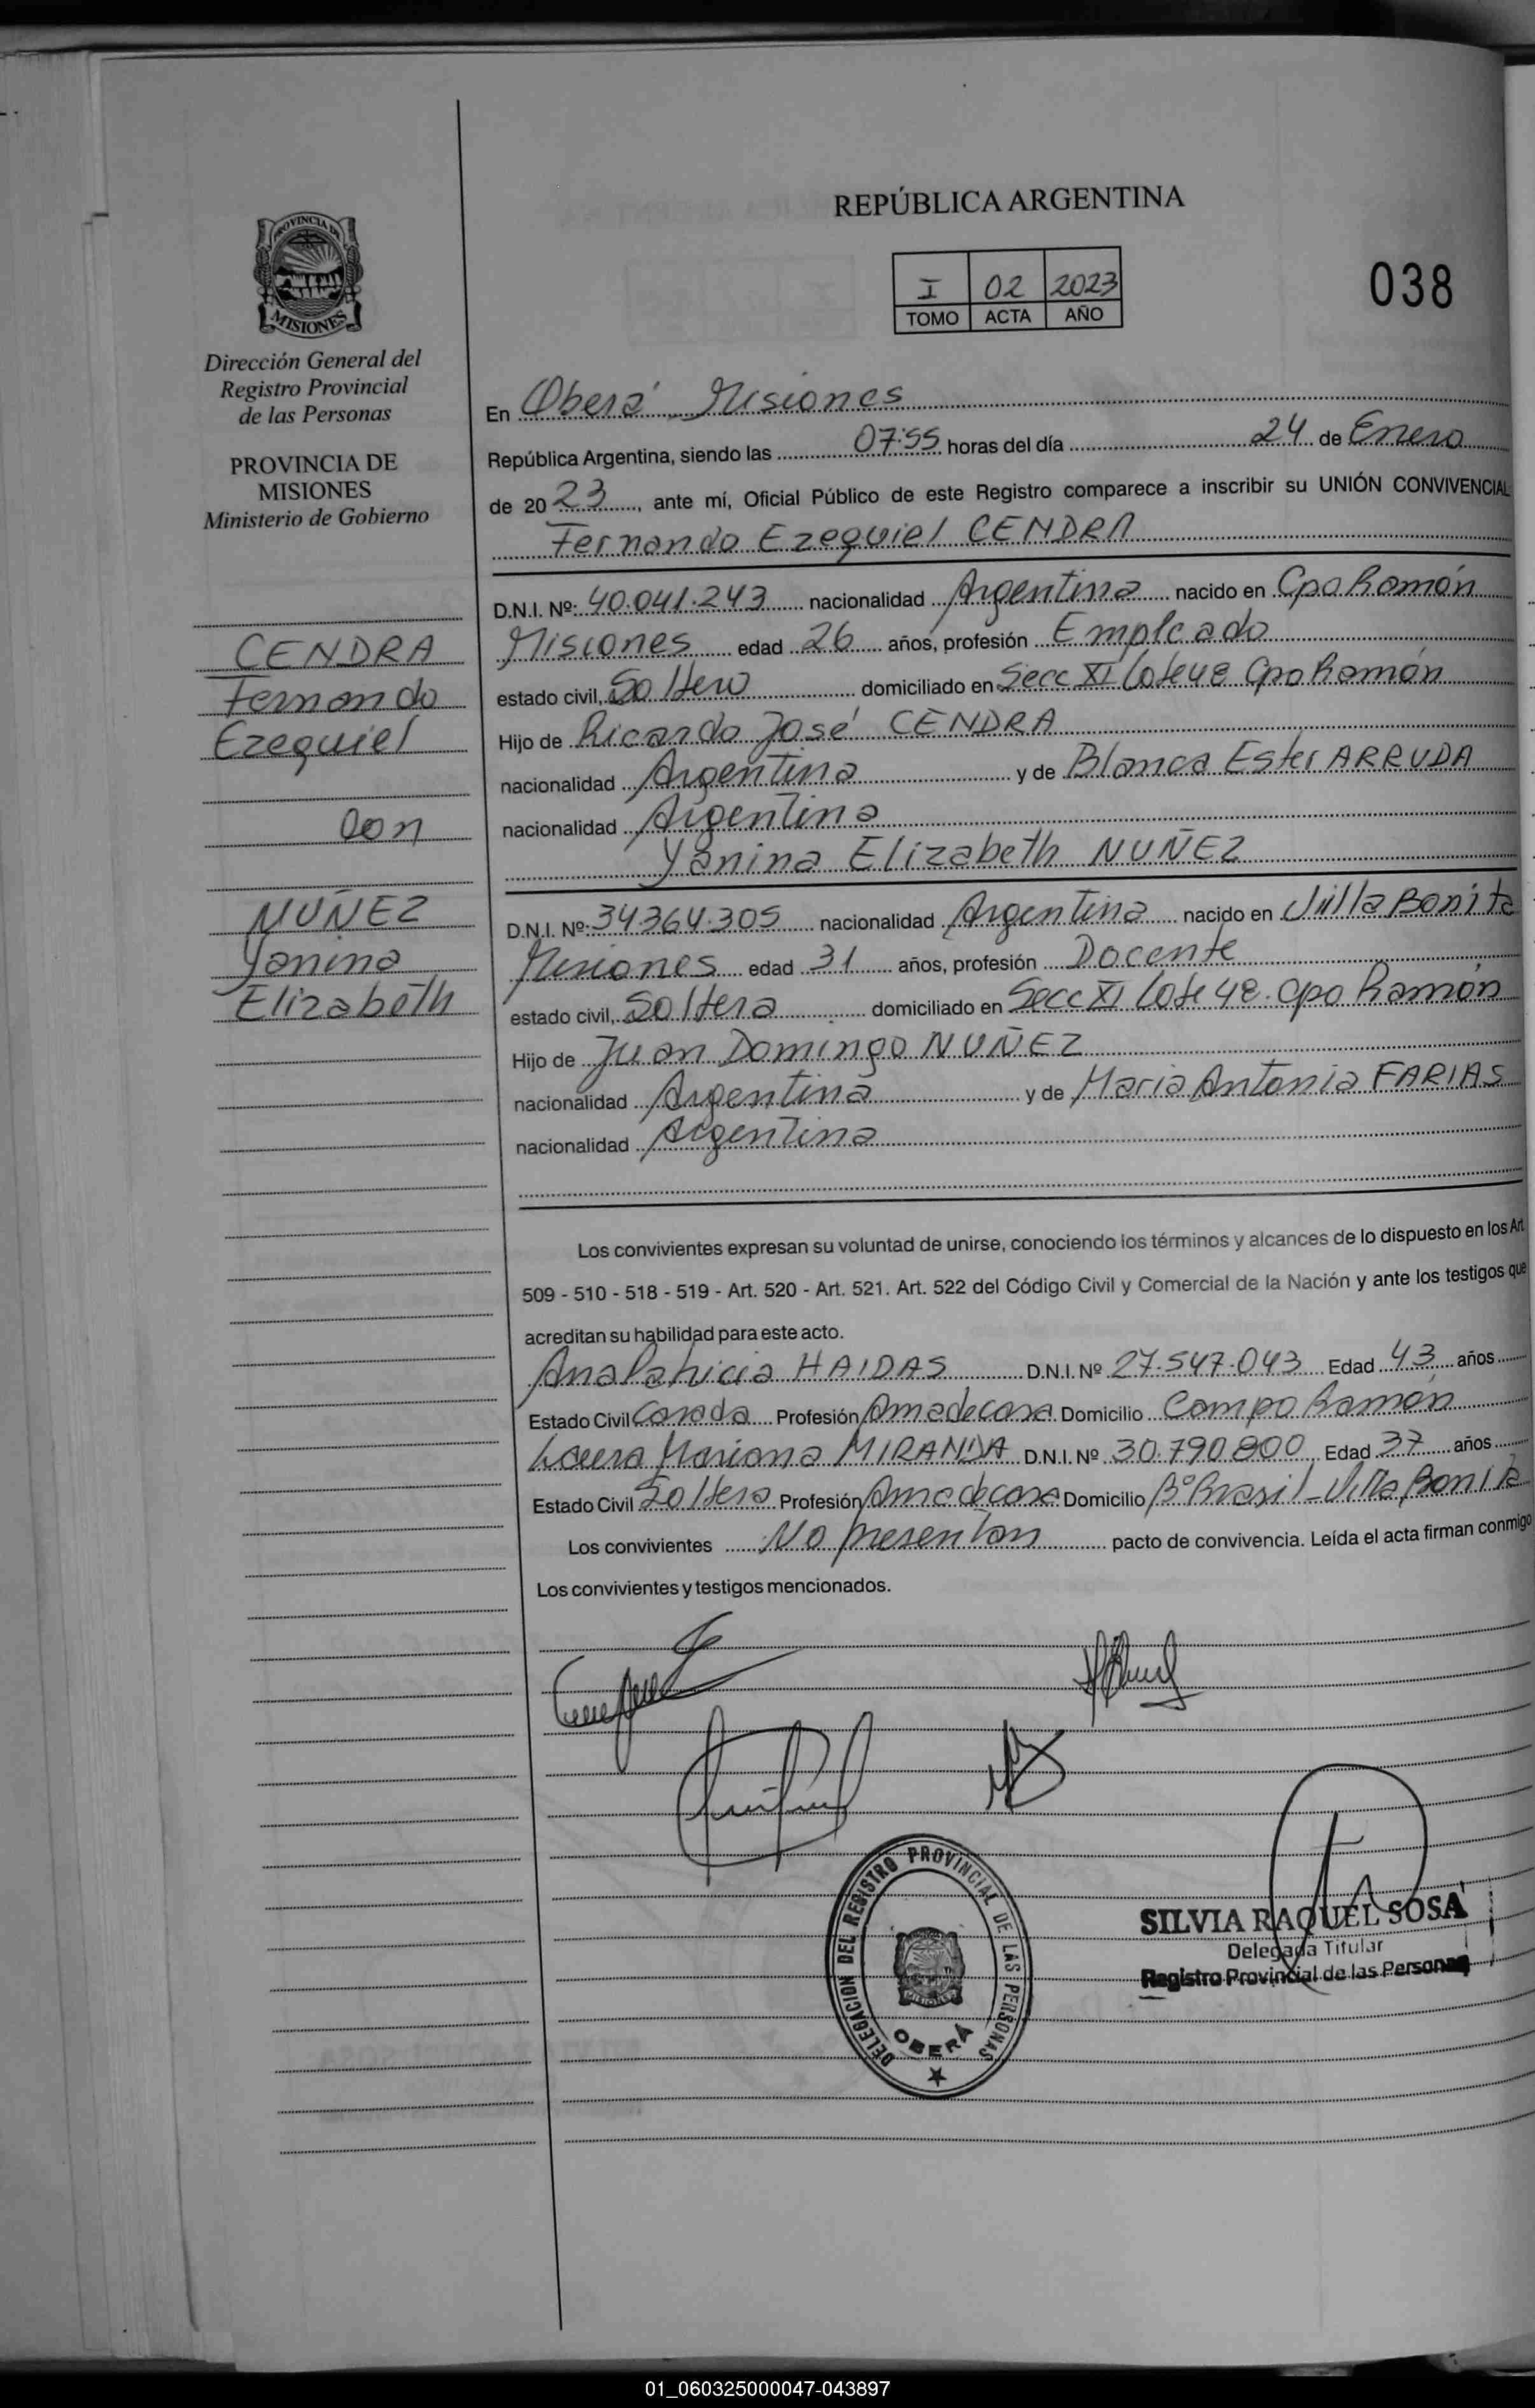 REPÚBLICA ARGENTINA
I 02 2023
TOMO ACTA AÑO
038
PROVINCIA DE
MISIONES
Dirección General del
Registro Provincial
de las Personas
PROVINCIA DE
MISIONES
Ministerio de Gobierno
CENDRA
Fernando
Ezequiel
Con
NUÑEZ
Yanina
Elizabeth
En Oberá - Misiones
República Argentina, siendo las 07:55 horas del día 24 de Enero
de 2023, ante mí, Oficial Público de este Registro comparece a inscribir su UNIÓN CONVIVENCIAL:
Fernando Ezequiel CENDRA
D.N.I. Nº: 40.041.243 nacionalidad Argentina nacido en Cpo Ramón
Misiones edad 26 años, profesión Empleado
estado civil, Soltero domiciliado en Secc XI Lote 48 Cpo Ramón
Hijo de Ricardo José CENDRA
nacionalidad Argentina y de Blanca Ester ARRUDA
nacionalidad Argentina
Yanina Elizabeth NUÑEZ
D.N.I. Nº: 34.364.305 nacionalidad Argentina nacido en Villa Bonita
Misiones edad 31 años, profesión Docente
estado civil, Soltera domiciliado en Secc XI Lote 48. Cpo Ramón
Hijo de Juan Domingo NUÑEZ
nacionalidad Argentina y de Maria Antonia FARIAS
nacionalidad Argentina
Los convivientes expresan su voluntad de unirse, conociendo los términos y alcances de lo dispuesto en los Art.
509 - 510 - 518 - 519 - Art. 520 - Art. 521. Art. 522 del Código Civil y Comercial de la Nación y ante los testigos que
acreditan su habilidad para este acto.
Ana Patricia HAIDAS D.N.I. Nº 27.547.043 Edad 43 años
Estado Civil Casada Profesión Ama de casa Domicilio Campo Ramón
Laura Mariana MIRANDA D.N.I. Nº 30.790.800 Edad 37 años
Estado Civil Soltera Profesión Ama de casa Domicilio Bº Brasil - Villa Bonita
Los convivientes No presentan pacto de convivencia. Leída el acta firman conmigo
Los convivientes y testigos mencionados.
DELEGACION DEL REGISTRO PROVINCIAL DE LAS PERSONAS
OBERÁ
SILVIA RAQUEL SOSA
Delegada Titular
Registro Provincial de las Personas
01_060325000047-043897